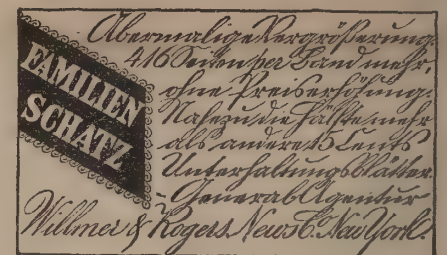 FAMILIEN
SCHATZ
Abermalige Vergrößerung.
416 Seiten per Band mehr,
ohne Preiserhöhung.
Nahezu die Hälfte mehr
als andere 5 Cents
Unterhaltungsblätter.
-General Agentur
Willmer & Rogers News C. New York.